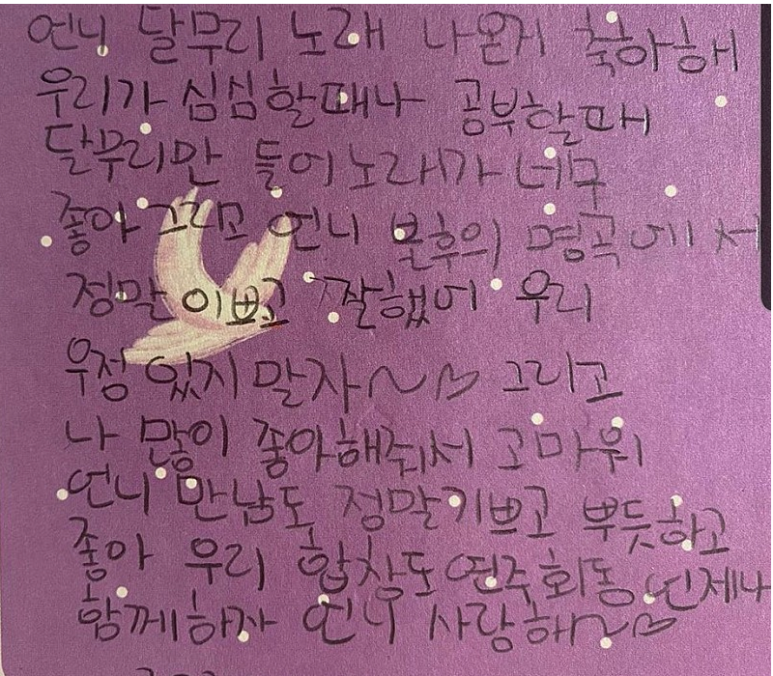 언니 달무리 노래 나온거 축하해
우리가 심심할때나 공부할때
달무리만 들어 노래가 너무
좋아 그리고 언니 불후의 명곡에서
정말 이쁘고 잘했어 우리
우정 잊지말자~♡ 그리고
나 많이 좋아해줘서 고마워
언니 만남도 정말기쁘고 뿌듯하고
좋아 우리 합창도 연주회동 언제나
함께하자 언니 사랑해~♡